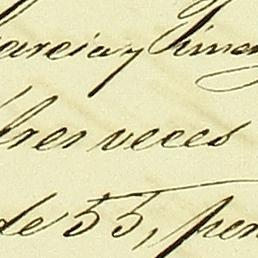 arcia y Jimen
tres veces
de 55, per